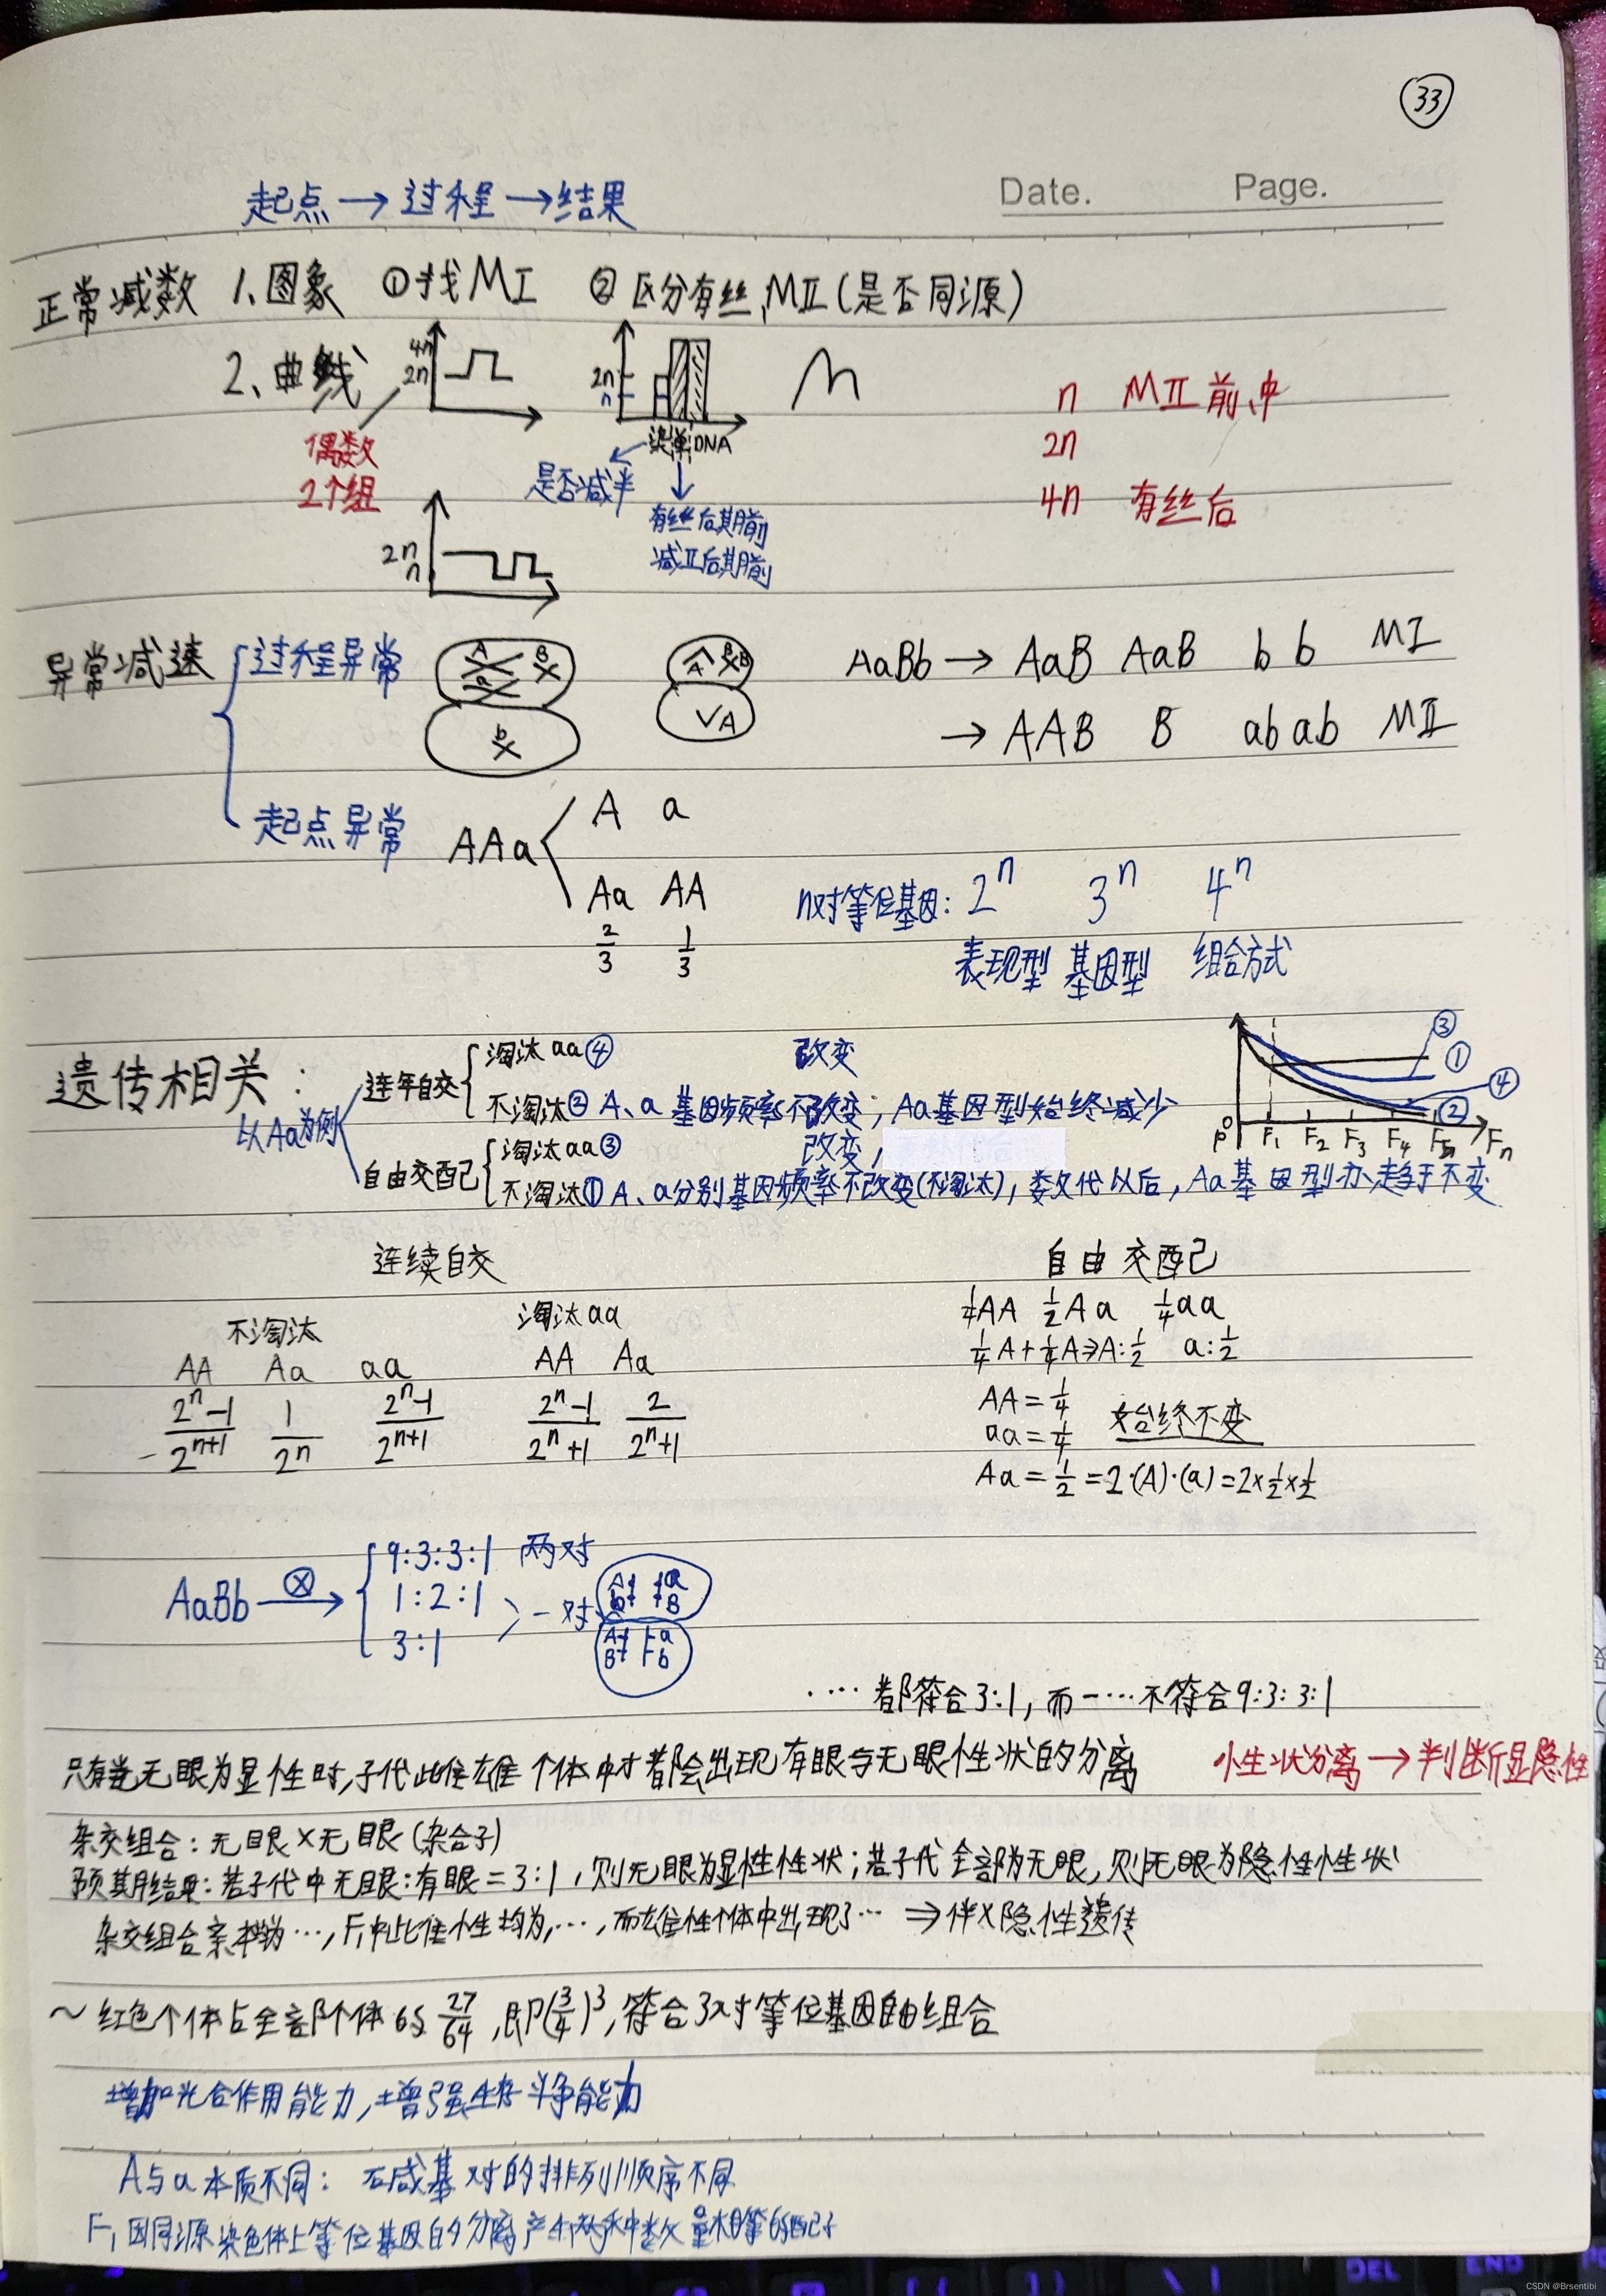 33
Date. Page.
起点→过程→结果
正常减数 1、图象 ①找MⅠ ②区分有丝、MⅡ(是否同源)
2、曲线 4n 2n 2n n n MⅡ前、中
染单DNA
偶数 是否减半 2n
2个组 4n 有丝后
有丝后期前
2n 减Ⅱ后期前
n
异常减速 过程异常 A B a A B B AaBb→AaB AaB b b MⅠ
b A →AAB B ab ab MⅡ
起点异常 AAa A a
Aa AA n对等位基因: 2ⁿ 3ⁿ 4ⁿ
2/3 1/3 表现型 基因型 组合方式
遗传相关: 连年自交 淘汰aa④ 改变 ③ ① ④ ②
以Aa为例 不淘汰② A、a基因频率不改变;Aa基因型始终减少
自由交配 淘汰aa③ 改变, P⁰ F₁ F₂ F₃ F₄ F₅ Fn
不淘汰① A、a分别基因频率不改变(不淘汰),数代以后,Aa基因型亦趋于不变
连续自交 自由交配
不淘汰 淘汰aa 1/4AA 1/2Aa 1/4aa
AA Aa aa AA Aa 1/4A+1/4A⇒A:1/2 a:1/2
(2ⁿ-1)/2ⁿ⁺¹ 1/2ⁿ (2ⁿ-1)/2ⁿ⁺¹ (2ⁿ-1)/(2ⁿ+1) 2/(2ⁿ+1) AA=1/4
aa=1/4 始终不变
Aa=1/2=2·(A)·(a)=2×1/2×1/2
AaBb ⊗→ 9:3:3:1 两对
1:2:1 一对 A b a B
3:1 A B a b
····都符合3:1,而一···不符合9:3:3:1
只有当无眼为显性时,子代雌雄个体中才都会出现有眼与无眼性状的分离 性状分离→判断显隐性
杂交组合:无眼×无眼(杂合子)
预期结果:若子代中无眼:有眼=3:1,则无眼为显性性状;若子代全部为无眼,则无眼为隐性性状
杂交组合亲本为···,F₁中雌性均为,···,而雄性个体中出现了···⇒伴X隐性遗传
~红色个体占全部个体的27/64,即(3/4)³,符合3对等位基因自由组合
增加光合作用能力,增强生存斗争能力
A与a本质不同: 碱基对的排列顺序不同
F₁因同源染色体上等位基因的分离产生两种数量相等的配子
DEL END
CSDN @Brsentibi